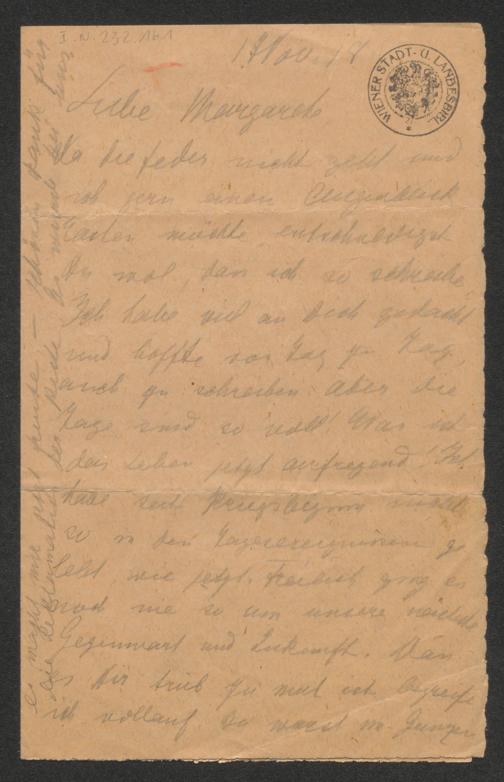 I. N. 232.161
1 Nov. 17
WIENER STADT- U. LANDESBIBL.
Liebe Margarete
Da die Feder nicht geht und
ich gern einen Augenblick
rasten möchte entschuldigst
Du wol, dass ich so schreibe.
Ich habe viel an Dich gedacht
und hoffte von Tag zu Tag,
auch zu schreiben aber die
Tage sind so voll! Was ist
das Leben jetzt aufregend! Ich
habe seit Kriegsbeginn nicht
so in den Tagesereignissen ge
lebt, wie jetzt. Freilich ging es
noch nie so um unsere nächste
Gegenwart und Zukunft. Dass
es Dir trüb zu mut ist begreife
ich vollauf Du warst im Ganzen
es macht mir viel Freude — schönen Dank für
die Reclamation der Rede